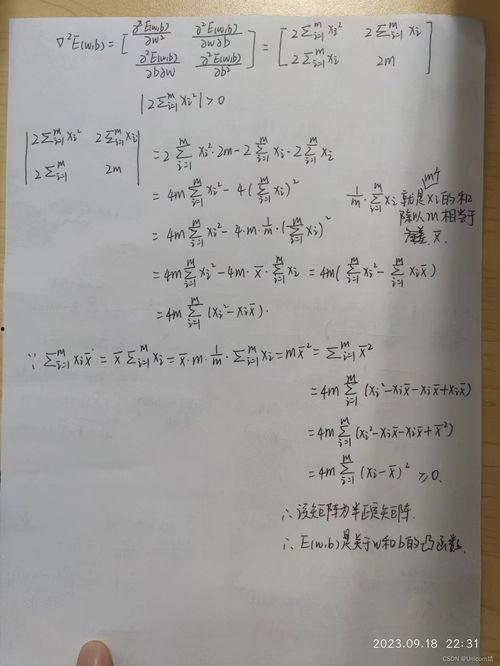 ∇²E(w,b) = [ ∂²E(w,b)/∂w² ∂²E(w,b)/∂w∂b ; ∂²E(w,b)/∂b∂w ∂²E(w,b)/∂b² ] = [ 2∑ᵢ₌₁ᵐ xᵢ² 2∑ᵢ₌₁ᵐ xᵢ ; 2∑ᵢ₌₁ᵐ xᵢ 2m ]
|2∑ᵢ₌₁ᵐ xᵢ²| > 0
| 2∑ᵢ₌₁ᵐ xᵢ² 2∑ᵢ₌₁ᵐ xᵢ ; 2∑ᵢ₌₁ᵐ 2m | = 2∑ᵢ₌₁ᵐ xᵢ²·2m − 2∑ᵢ₌₁ᵐ xᵢ·2∑ᵢ₌₁ᵐ xᵢ
= 4m∑ᵢ₌₁ᵐ xᵢ² − 4(∑ᵢ₌₁ᵐ xᵢ)²
m个
1/m·∑ᵢ₌₁ᵐ xᵢ 就是xᵢ的和
除以m 相当于
x̄.
= 4m∑ᵢ₌₁ᵐ xᵢ² − 4·m·1/m·(∑ᵢ₌₁ᵐ xᵢ)²
= 4m∑ᵢ₌₁ᵐ xᵢ² − 4m·x̄·∑ᵢ₌₁ᵐ xᵢ = 4m(∑ᵢ₌₁ᵐ xᵢ² − ∑ᵢ₌₁ᵐ xᵢx̄)
= 4m∑ᵢ₌₁ᵐ (xᵢ² − xᵢx̄).
∵ ∑ᵢ₌₁ᵐ xᵢx̄ = x̄∑ᵢ₌₁ᵐ xᵢ = x̄·m·1/m·∑ᵢ₌₁ᵐ xᵢ = mx̄² = ∑ᵢ₌₁ᵐ x̄²
= 4m∑ᵢ₌₁ᵐ (xᵢ² − xᵢx̄ − xᵢx̄ + xᵢx̄)
= 4m∑ᵢ₌₁ᵐ (xᵢ² − xᵢx̄ − xᵢx̄ + x̄²)
= 4m∑ᵢ₌₁ᵐ (xᵢ − x̄)² ≥0.
∴ 该矩阵为半正定矩阵.
∴ E(w,b)是关于w和b的凸函数.
2023.09.18 22:31
CSDN @Unicorn建